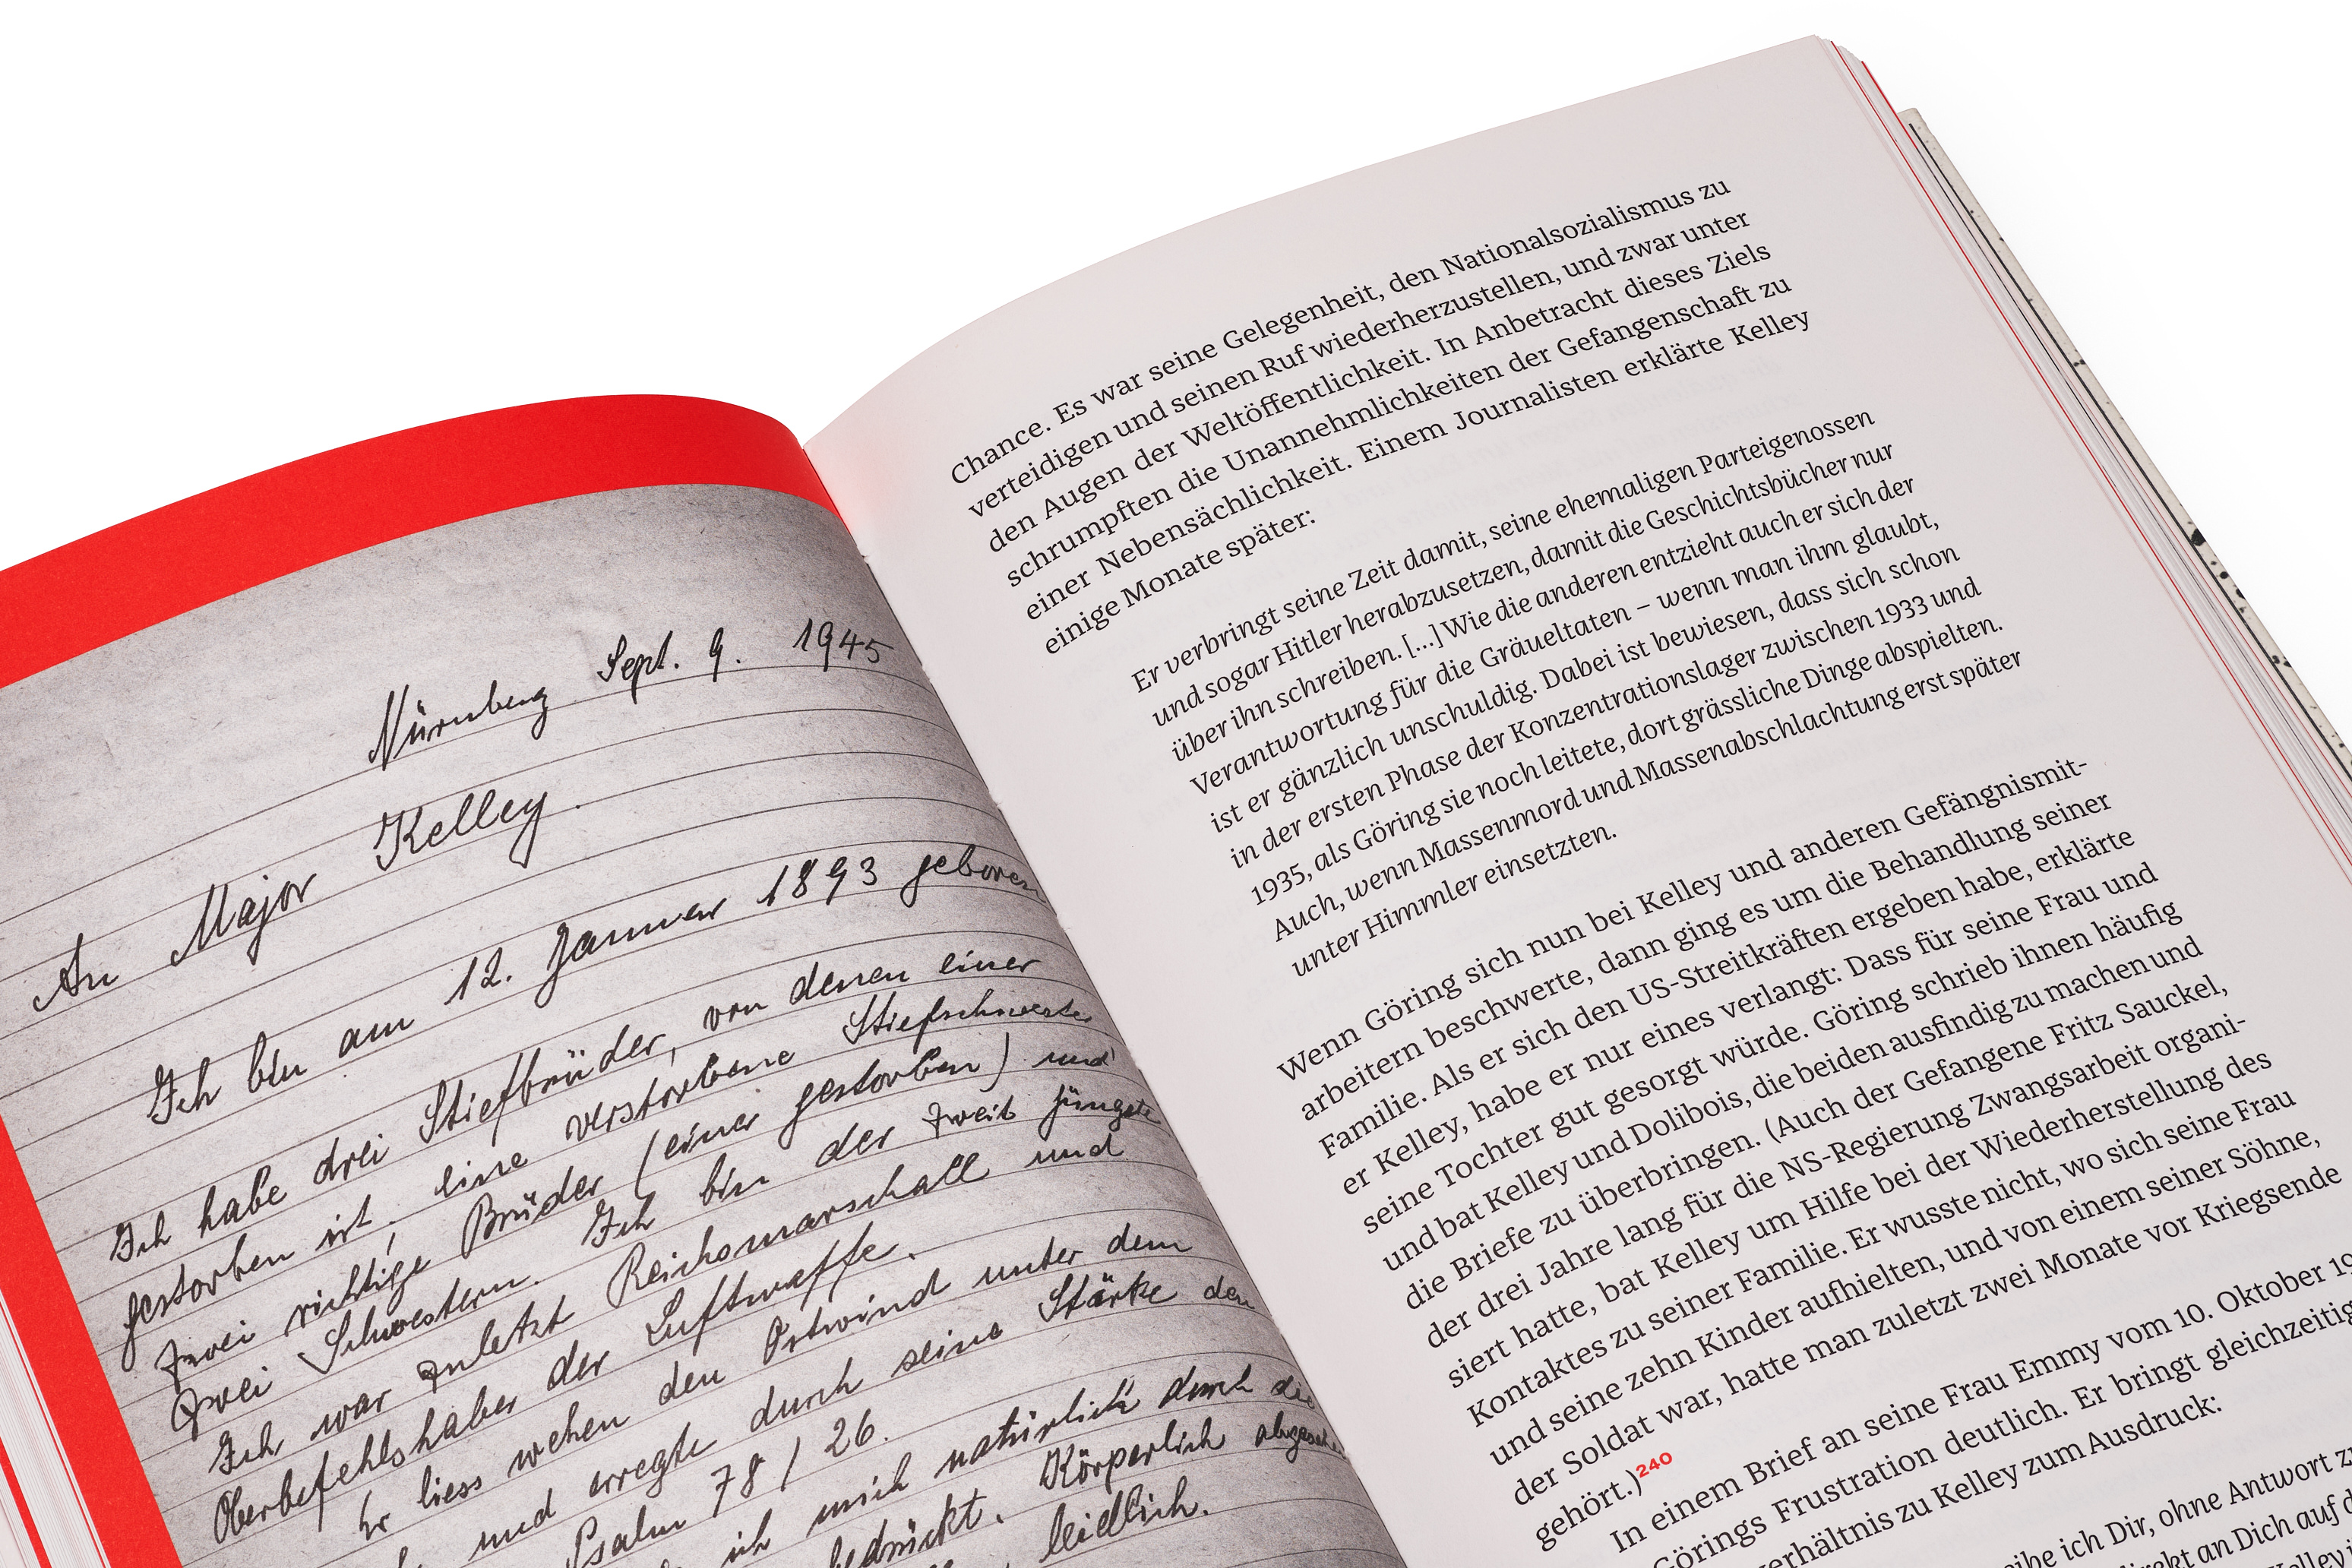 Nürnberg Sept. 9. 1945
An Major Kelley.
Ich bin am 12. Januar 1893 geboren
Ich habe drei Stiefbrüder, von denen einer
gestorben ist, eine verstorbene Stiefschwester
zwei richtige Brüder (einer gestorben) und
zwei Schwestern. Ich bin der zweit jüngste
Ich war zuletzt Reichsmarschall und
Oberbefehlshaber der Luftwaffe.
Er liess wehen den Ostwind unter dem
und erregte durch seine Stärke den
Psalm 78 / 26.
ich mich natürlich durch die
bedrückt. Körperlich
leidlich.
Chance. Es war seine Gelegenheit, den Nationalsozialismus zu
verteidigen und seinen Ruf wiederherzustellen, und zwar unter
den Augen der Weltöffentlichkeit. In Anbetracht dieses Ziels
schrumpften die Unannehmlichkeiten der Gefangenschaft zu
einer Nebensächlichkeit. Einem Journalisten erklärte Kelley
einige Monate später:
Er verbringt seine Zeit damit, seine ehemaligen Parteigenossen
und sogar Hitler herabzusetzen, damit die Geschichtsbücher nur
über ihn schreiben. [...] Wie die anderen entzieht auch er sich der
Verantwortung für die Gräueltaten – wenn man ihm glaubt,
ist er gänzlich unschuldig. Dabei ist bewiesen, dass sich schon
in der ersten Phase der Konzentrationslager zwischen 1933 und
1935, als Göring sie noch leitete, dort grässliche Dinge abspielten.
Auch, wenn Massenmord und Massenabschlachtung erst später
unter Himmler einsetzten.
Wenn Göring sich nun bei Kelley und anderen Gefängnismit-
arbeitern beschwerte, dann ging es um die Behandlung seiner
Familie. Als er sich den US-Streitkräften ergeben habe, erklärte
er Kelley, habe er nur eines verlangt: Dass für seine Frau und
seine Tochter gut gesorgt würde. Göring schrieb ihnen häufig
und bat Kelley und Dolibois, die beiden ausfindig zu machen und
die Briefe zu überbringen. (Auch der Gefangene Fritz Sauckel,
der drei Jahre lang für die NS-Regierung Zwangsarbeit organi-
siert hatte, bat Kelley um Hilfe bei der Wiederherstellung des
Kontaktes zu seiner Familie. Er wusste nicht, wo sich seine Frau
und seine zehn Kinder aufhielten, und von einem seiner Söhne,
der Soldat war, hatte man zuletzt zwei Monate vor Kriegsende
gehört.)240
In einem Brief an seine Frau Emmy vom 10. Oktober
Görings Frustration deutlich. Er bringt gleichzeitig
zu Kelley zum Ausdruck:
ich Dir, ohne Antwort
an Dich auf